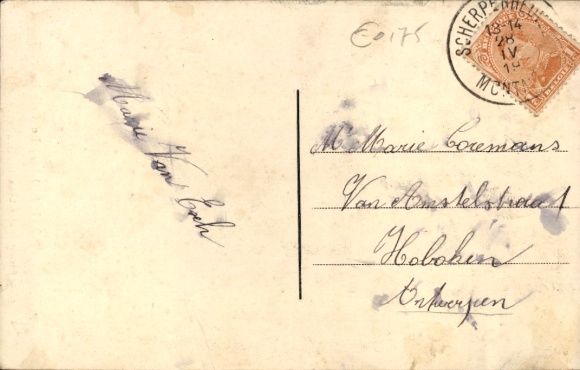 € 0175
SCHERPENHEU
13-14
IV
19
MONTA
Marie Van Esch
M Marie Coremans
Van Amstelstraat 1
Hoboken
Antwerpen